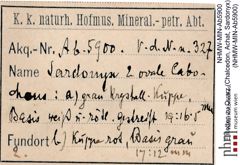 K. k. naturh. Hofmus. Mineral.-petr. Abt.
Akq.-Nr. Ab. 5900. V. d. N. m. 327
Name Sardonyx 2 ovale Cabo-
chons: a) grau Krystall-Kuppe,
Basis weiß u. röthl. gestreift 19:16 mm
Fundort b) Kuppe rot Basis grau
17:12 mm
NHMW-MIN-Ab5900
(Chalcedon, Achat, Sardonyx)
NHMW-MIN-Ab5900